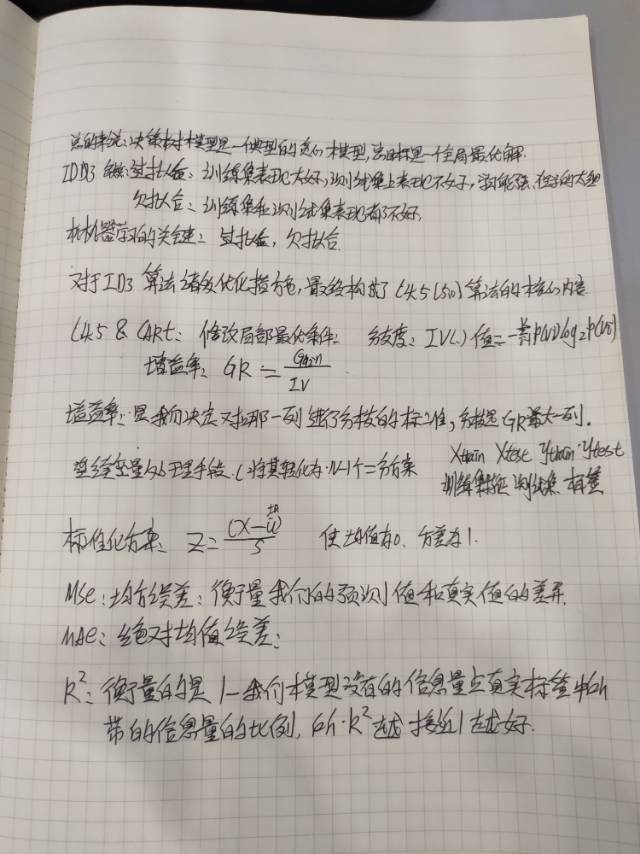 总的来说:决策树模型是一个典型的贪心模型,总目标是一个全局最优解.
ID3 缺点:过拟合:训练集表现太好,测试集上表现不好,学习能力强,
欠拟合:训练集和测试集表现都不好.
机器学习的关键:过拟合,欠拟合.
对于ID3 算法诸多优化措施,最终构成了 C4.5 (5.0) 算法的核心内容
C4.5 & CART: 修改局部最优条件: 分支度: IV(.) 值=-∑P(vi)log₂P(vi)
增益率: GR = Gain/IV
增益率:是我们决定对哪一列进行分枝的标准,分枝是GR最大一列.
连续变量处理手段.(将其转化为 N-1个二分方案
Xtrain Xtest Ytrain Ytest
训练集特征 测试集 标签
标准化方案: Z = (X-u)/S 使均值为0. 方差为1.
MSE:均方误差:衡量我们的预测值和真实值的差异.
MAE:绝对均值误差:
R²:衡量的是 1-我们模型没有的信息量占真实标签中所
带的信息量的比例, 所以R² 越接近1越好.